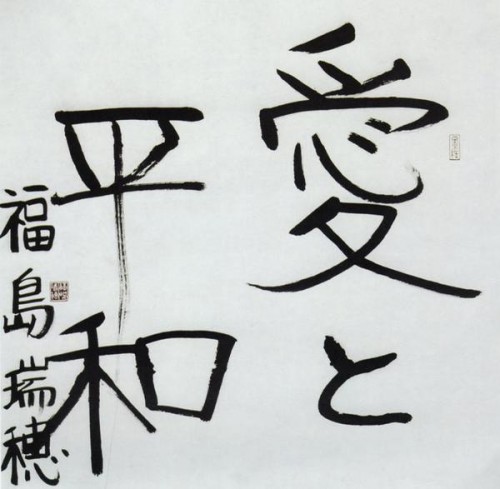 愛と
平和
福島瑞穂